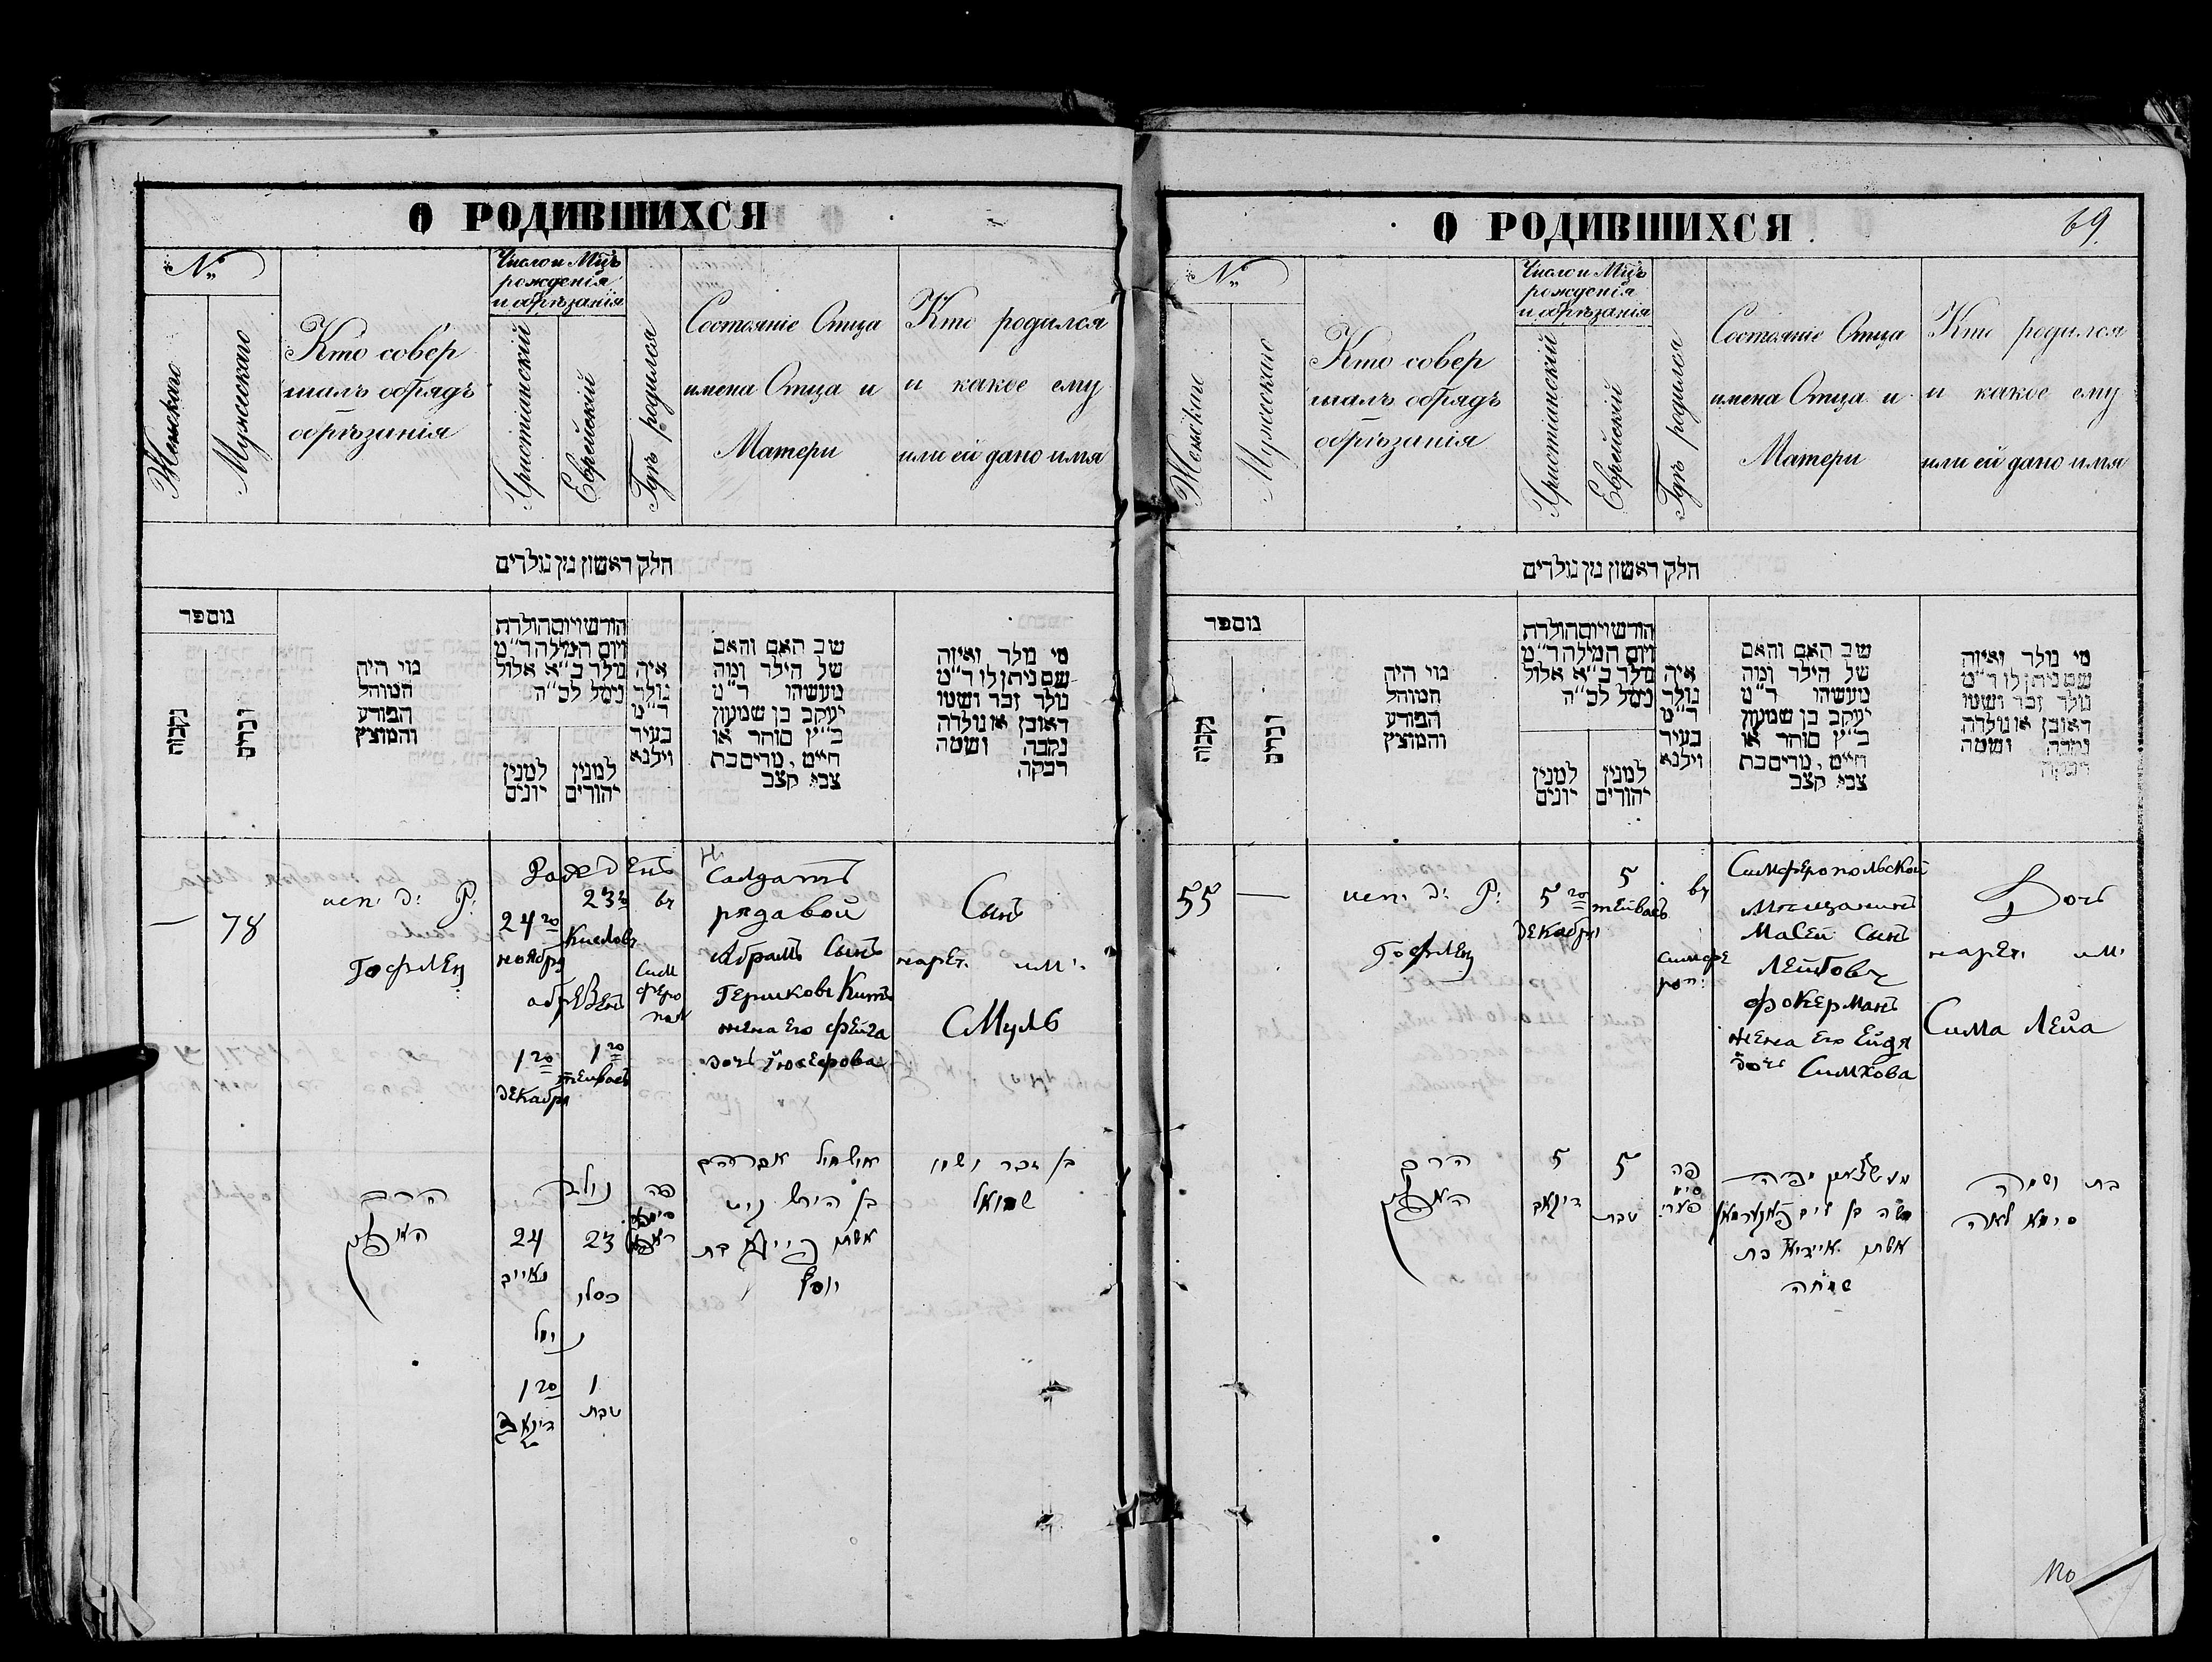 О РОДИВШИХСЯ
№
Женскаго
Мужескаго
Кто совер
шалъ обрядъ
обрѣзанія
Число и Мцъ
рожденія
и обрѣзанія
Христіанскій
Еврейскій
Гдѣ родился
Состояніе Отца
имена Отца и
Матери
Кто родился
и какое ему
или ей дано имя
חלק ראשון מן נולדים
מוספר
נקבות
זכרים
מי היה
המוהל
הפורע
והמוצץ
חודש ויום הולדת
ויום המילה ד״מ
נולד כ״א אלול
נימל לכ״ה
למנין
יונים
למנין
יהודים
איה
נולד
ד״מ
בעיר
ווילנא
שב האם והאם
של הילד ומה
מעשהו ד״מ
יעקב בן שמעון
כ״ץ סוחר או
חייט, מרים בת
צבי קצב
מי נולד ואיזה
שם ניתן לו ד״מ
נולד זכר ושמו
ראובן או נולדה
נקבה ושמה
רבקה
— 78
исп. д: Р:
Гофлец
24го
ноября
23го
Кислов
обрезен
1го
декабря
1го
тейвас
въ
Сим
феро
пол
Салдат
рядавой
Абрам Сын
Гершков Кит
жена его Фейга
дочь Юсефова
Сын
нарет. им.
Смуль
הרב
נולד
24
23
כסלו
נימל
1го
1
טבת
פה
בן הירש
יוסף
בן זכר ושמו
שמואל
О РОДИВШИХСЯ
69.
№
Женскаго
Мужескаго
Кто совер
шалъ обрядъ
обрѣзанія
Число и Мцъ
рожденія
и обрѣзанія
Христіанскій
Еврейскій
Гдѣ родился
Состояніе Отца
имена Отца и
Матери
Кто родился
и какое ему
или ей дано имя
חלק ראשון מן נולדים
מוספר
נקבות
זכרים
מי היה
המוהל
הפורע
והמוצץ
חודש ויום הולדת
ויום המילה ד״מ
נולד כ״א אלול
נימל לכ״ה
למנין
יונים
למנין
יהודים
איה
נולד
ד״מ
בעיר
ווילנא
שב האם והאם
של הילד ומה
מעשהו ד״מ
יעקב בן שמעון
כ״ץ סוחר או
חייט, מרים בת
צבי קצב
מי נולד ואיזה
שם ניתן לו ד״מ
נולד זכר ושמו
ראובן או נולדה
נקבה ושמה
רבקה
55 —
исп. д: Р:
Гофлец
5го
декабря
5
тейвас
въ
симфе
роп:
Симферопольской
Мещанин
Масей Сын
Лейбов
Фокерман
Жена его Ейдя
дочь Симхова
Дочь
нарет. им.
Сима Лейа
הרב
5
5
טבת
פה
משה בן
שמחה
בת ושמה
סימא לאה